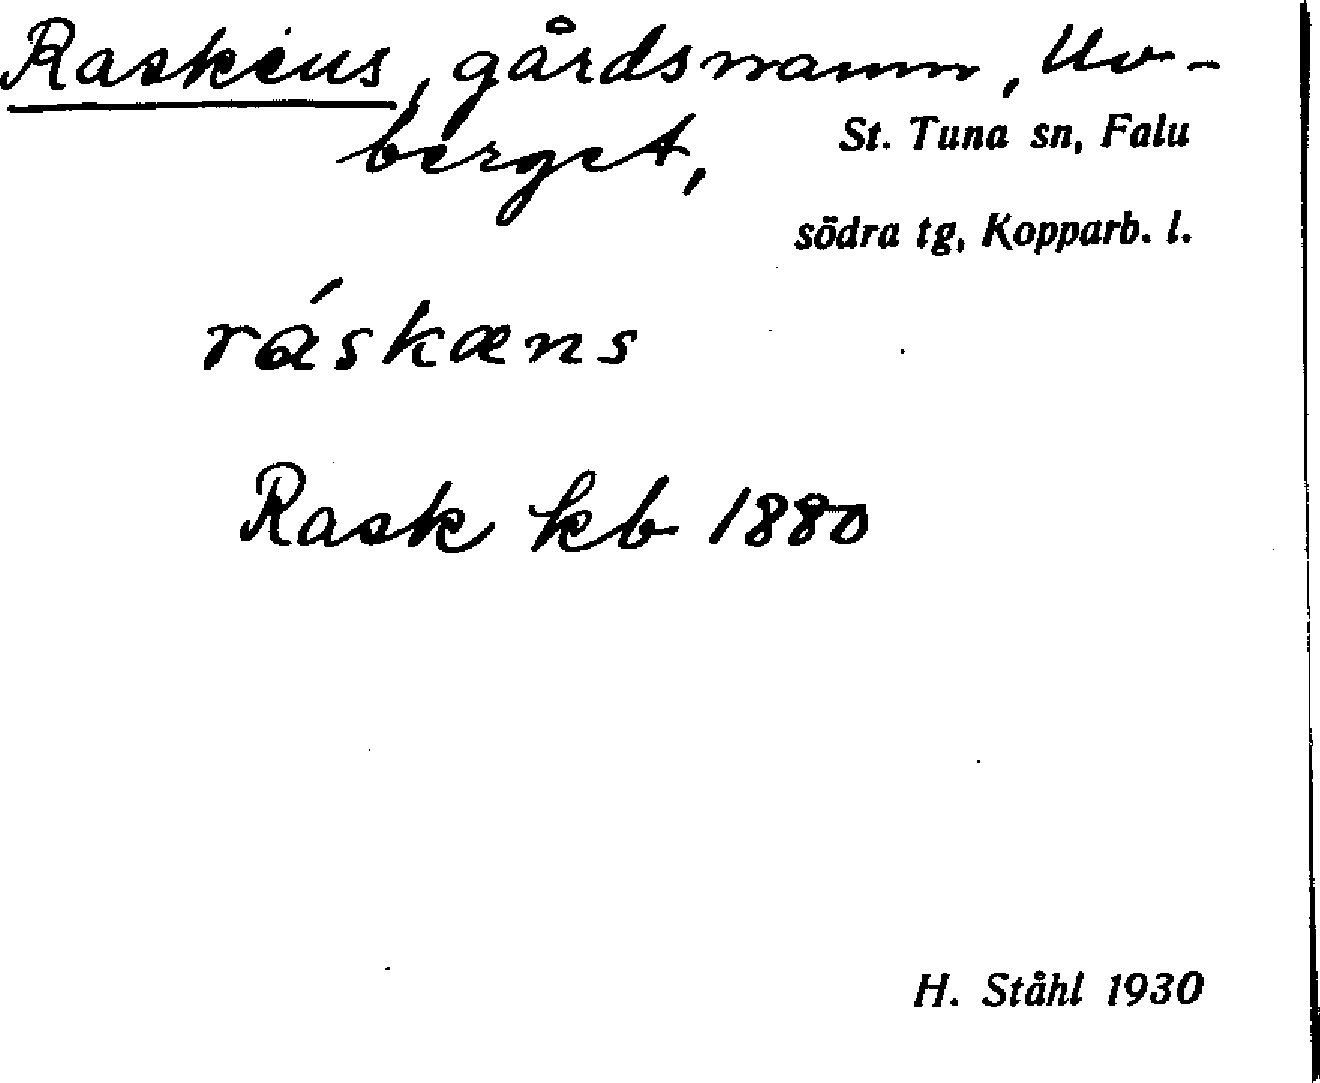 Raskens, gårdsnamn, Uv-
berget,
St. Tuna sn, Falu
södra tg, Kopparb. l.
ráskæns
Rask kb 1880
H. Ståhl 1930